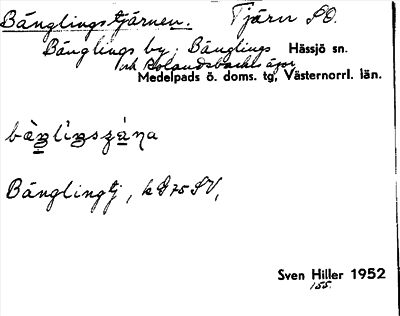 Bänglingstjärnen. Tjärn SO.
Bänglings by; Bänglings Hässjö sn.
och Rolandsbackls ägor
Medelpads ö. doms. tg, Västernorrl. län.
Bänglingtj, k G 75 SV,
Sven Hiller 1952
155.